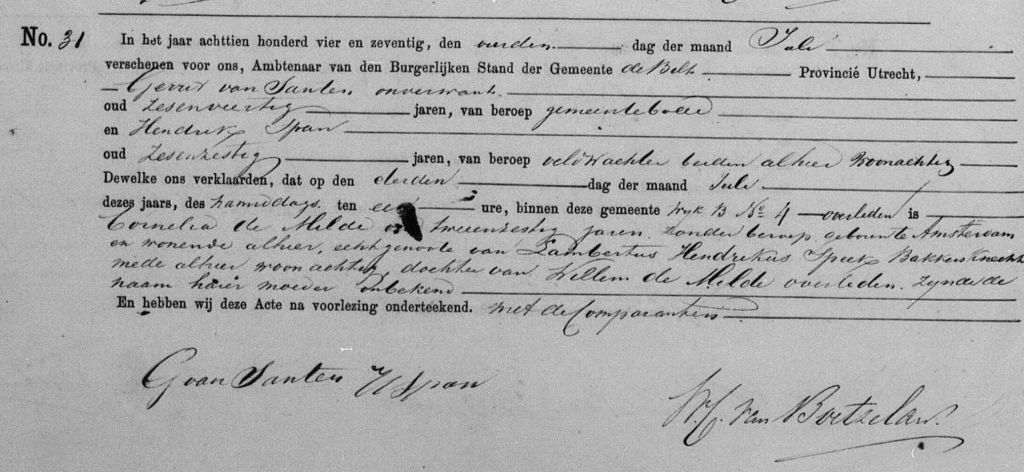 No. 31 In het jaar achttien honderd vier en zeventig, den vierden dag der maand Juli
verschenen voor ons, Ambtenaar van den Burgerlijken Stand der Gemeente de Bilt Provincië Utrecht,
Gerrit van Santen onverwant
oud zesenveertig jaren, van beroep gemeentebode
en Hendrik Span
oud zesenzestig jaren, van beroep veldwachter beiden alhier woonachtig
Dewelke ons verklaarden, dat op den derden dag der maand Juli
dezes jaars, des namiddags ten een ure, binnen deze gemeente wyk B No 4 overleden is
Cornelia de Milde oud tweenzestig jaren zonder beroep geboorte Amsterdam
en wonende alhier, echtgenoote van Lambertus Hendrikus Speek Bakkersknecht
mede alhier woonachtig, dochter van Willem de Milde overleden. zynde de
naam harer moeder onbekend
En hebben wij deze Acte na voorlezing onderteekend. met de Comparanten
G van Santen H Span
W. C. van Boetzelaer